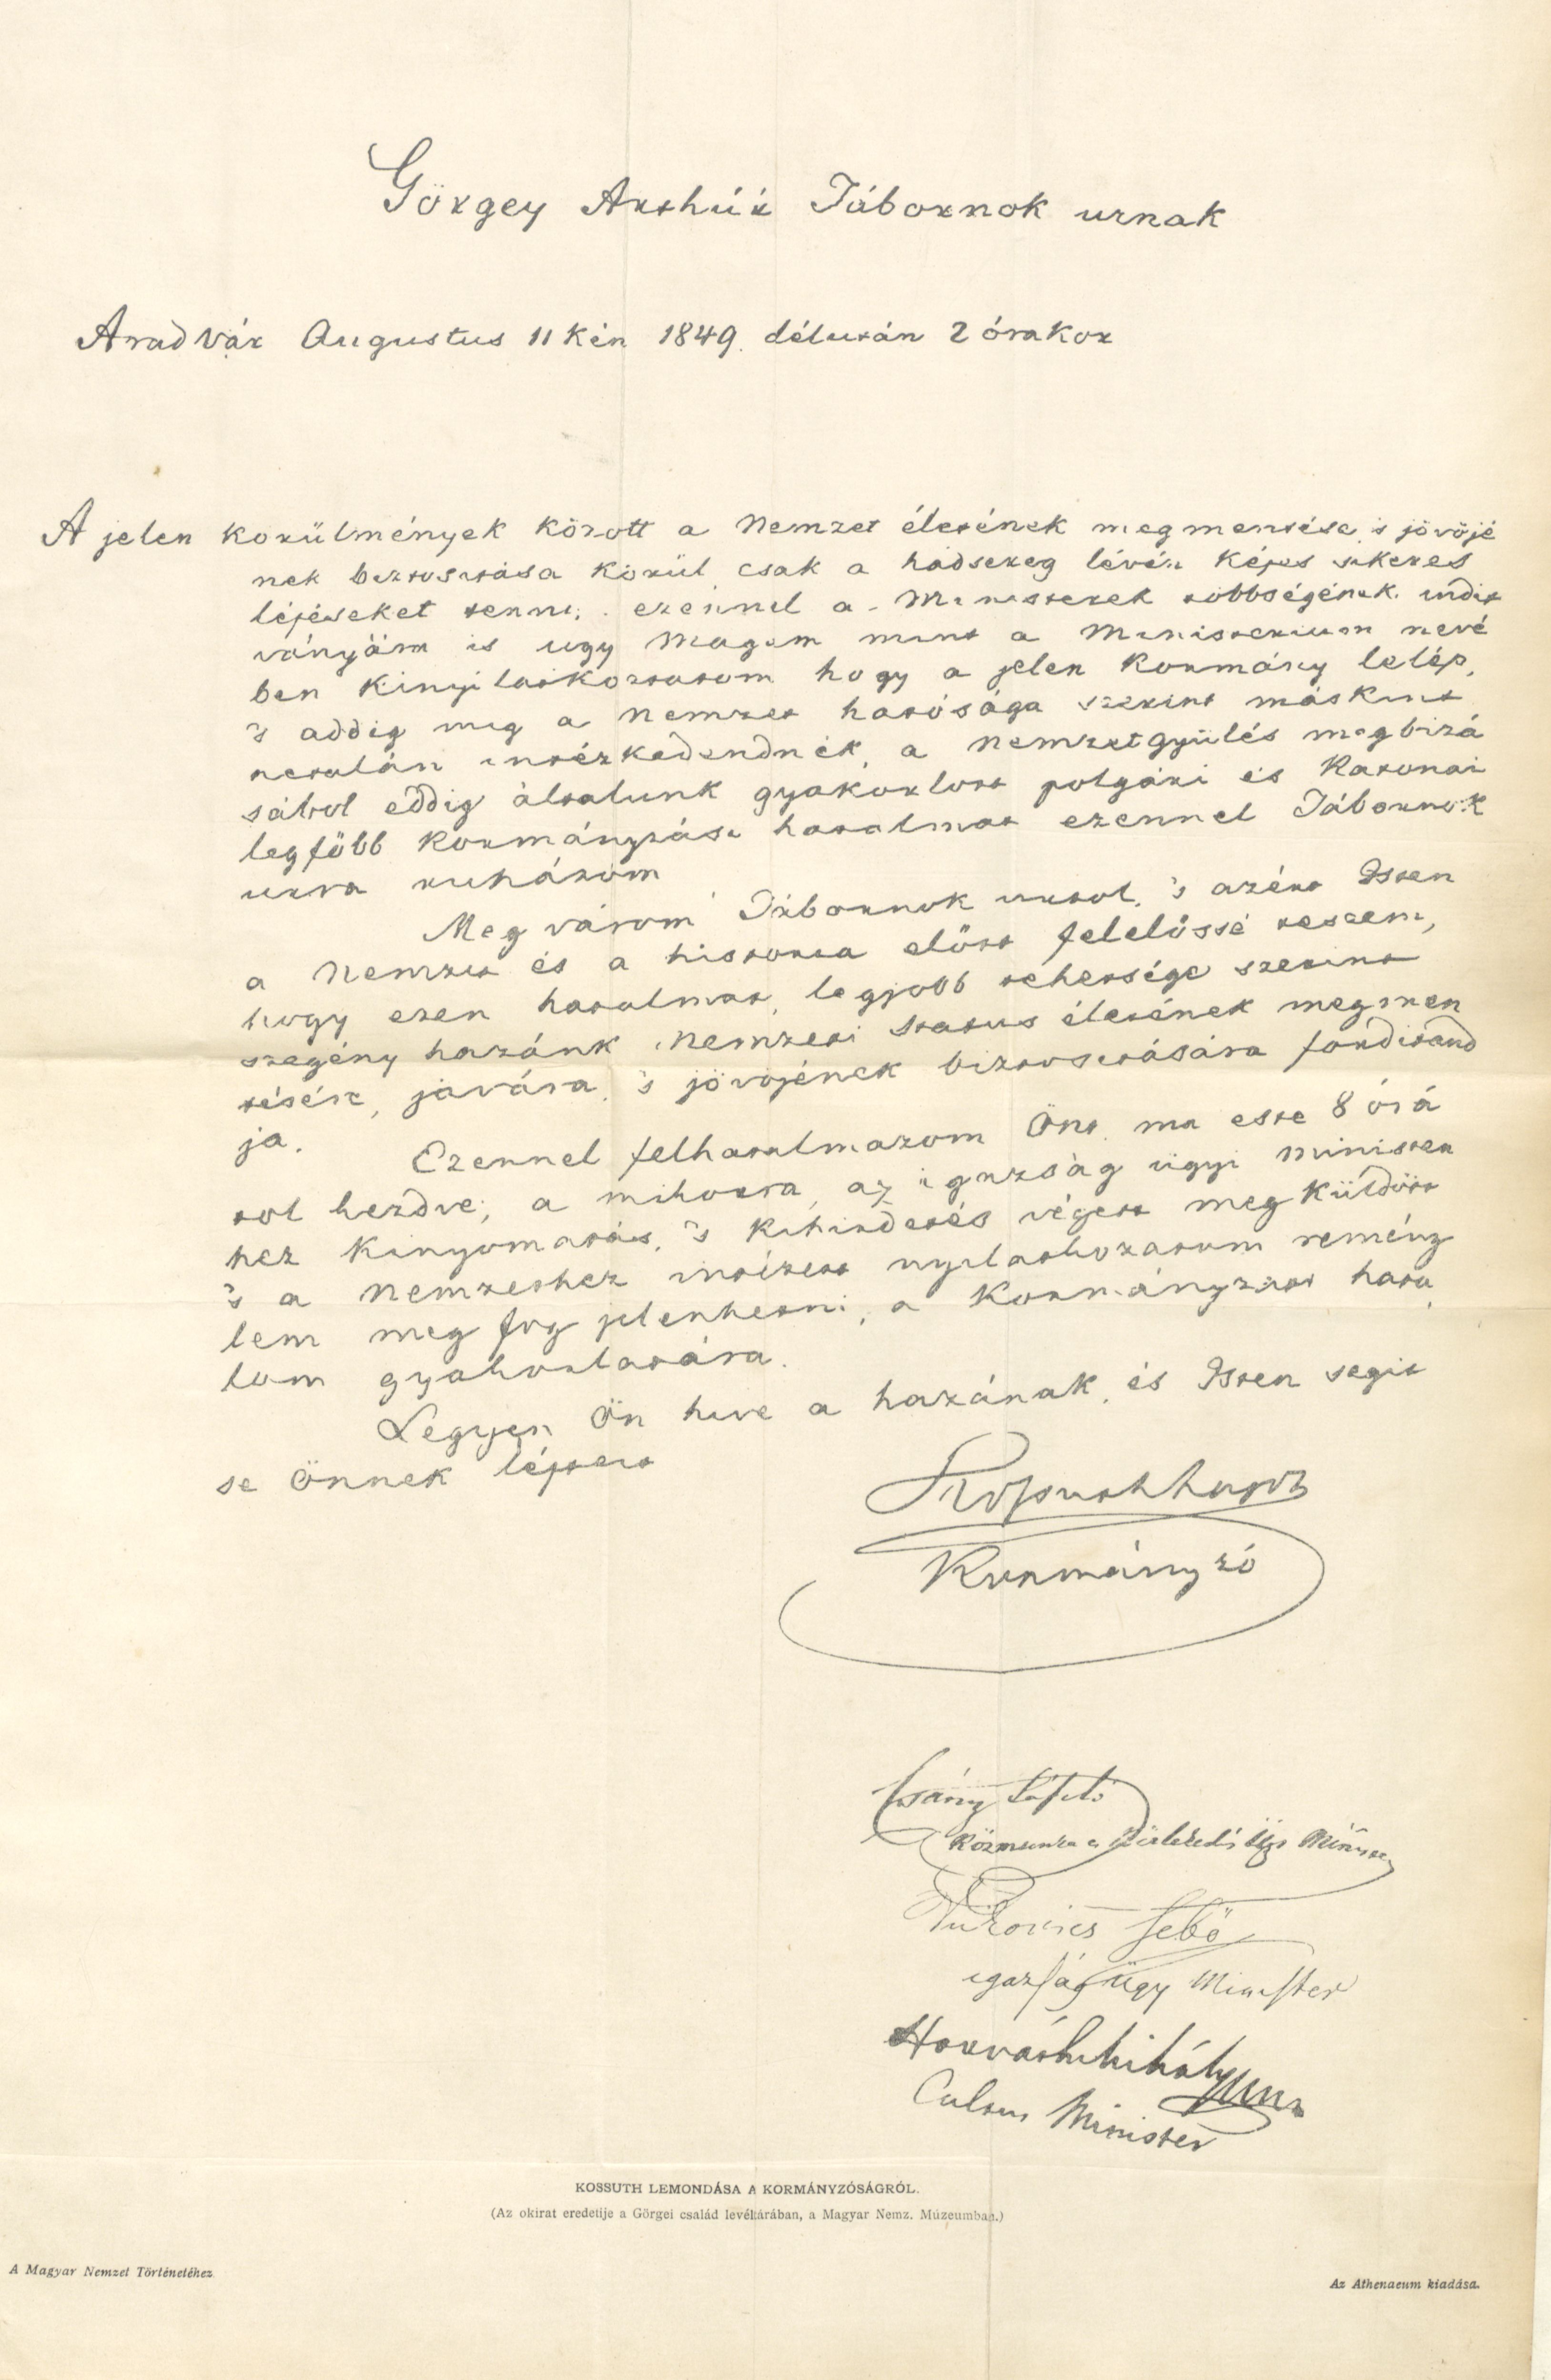 Görgey Arthúr Tábornok urnak
Aradvár Augustus 11kén 1849. délután 2 órakor
A jelen korülmények közott a Nemzet életének megmentése, 's jövöjé
nek biztositása körül csak a hadsereg lévén képes sikeres
lépéseket tenni; ezennel a Ministerek többségének indit
ványára is ugy magam mint a Ministerium nevé
ben kinyilatkoztatom hogy a jelen kormány lelép,
's addig mig a nemzet hatósága szerint máskint
netalán intézkedendnék, a nemzetgyülés megbizá
sábol eddig általunk gyakorlott polgári és katonai
legföbb kormányzási hatalmat ezennel Tábornok
urra ruházom
Meg várom Tábornok urtol, 's azért Isten
a Nemzet és a historia elött felelössé teszem,
hogy ezen hatalmat, legjobb tehetsége szerint
szegény hazánk nemzeti status életének megmen
tésére, javára, 's jövöjének biztositására forditand
ja.
Ezennel felhatalmazom Önt ma este 8 órá
tol kezdve, a mikorra az igazság ügyi minister
hez kinyomatás, 's kihirdetés végett megküldött
's a Nemzethez intézett nyilatkozatom remény
lem meg fog jelenhetni, a kormányzati hata
lom gyakorlatára.
Legyen Ön hive a hazának, és Isten segit
se Önnek lépteit
Kossuth Lajos
Kormányzó
Csány László
Közmunka és Közlekedési Ügyi Minister
Vukovics Sebö
igazságügy Minister
Horváth Mihály
Cultus Minister
KOSSUTH LEMONDÁSA A KORMÁNYZÓSÁGRÓL.
(Az okirat eredetije a Görgei család levéltárában, a Magyar Nemz. Múzeumban.)
A Magyar Nemzet Történetéhez
Az Athenaeum kiadása.